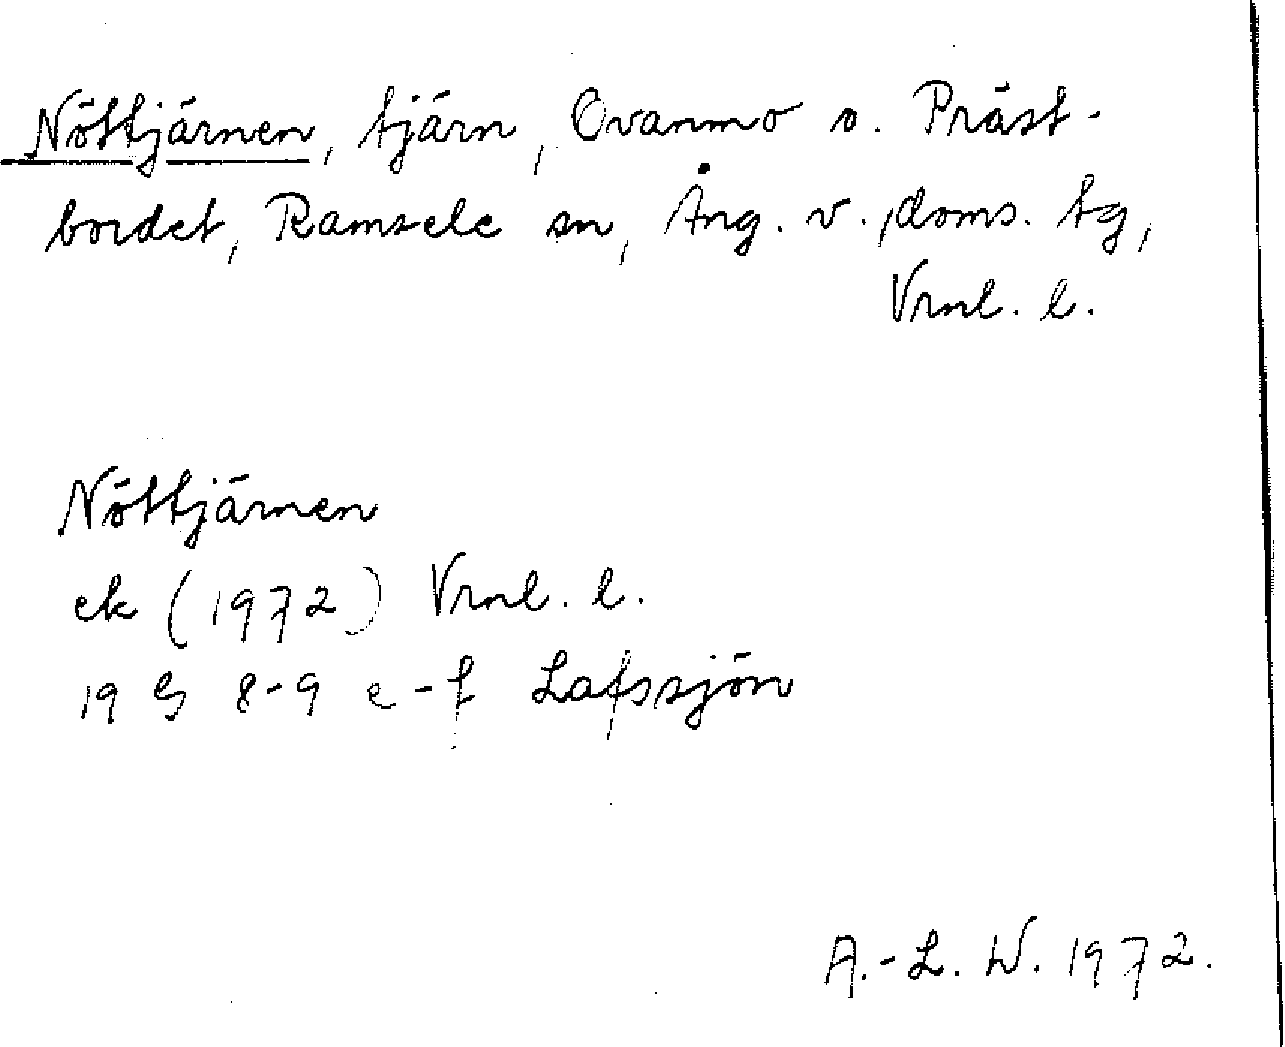 Nöttjärnen, tjärn, Ovanmo o. Präst-
bordet, Ramsele sn, Ång. v. doms. tg,
Vrnl. l.
Nöttjärnen
ek (1972) Vrnl. l.
19 G 8-9 e-f Lafssjön
A.-L. W. 1972.